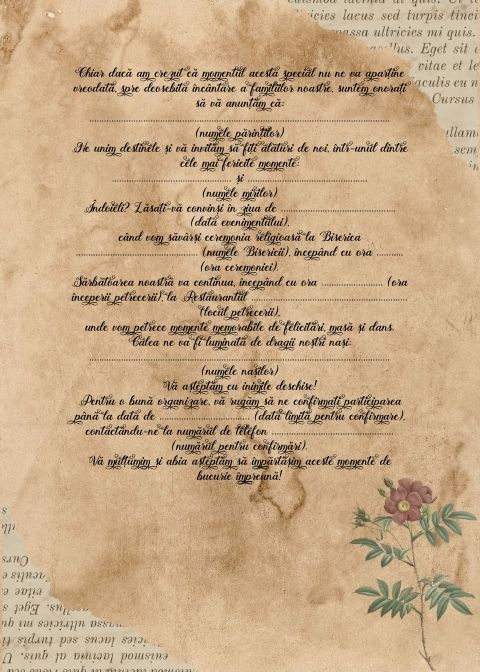 euismod lacinia at quis. Ut
ltricies lacus sed turpis tinci
massa ultricies mi quis.
llus. Eget sit
vitae et le
aculis eu n
Cursus
ullam
sem
Chiar dacă am crezut că momentul acesta special nu ne va aparține
vreodată, spre deosebită încântare a familiilor noastre, suntem onorați
să vă anunțăm că:
(numele părinților)
Ne unim destinele și vă invităm să fiți alături de noi, într-unul dintre
cele mai fericite momente:
.............................. și ..............................
(numele mirilor)
Îndoieli? Lăsați-vă convinși în ziua de ..............................
(data evenimentului),
când vom săvârși ceremonia religioasă la Biserica
.............................. (numele Bisericii), începând cu ora .......
(ora ceremoniei).
Sărbătoarea noastră va continua, începând cu ora ............... (ora
începerii petrecerii), la Restaurantul ..............................
(locul petrecerii),
unde vom petrece momente memorabile de felicitări, masă și dans.
Calea ne va fi luminată de dragii noștri nași:
(numele nașilor)
Vă așteptăm cu inimile deschise!
Pentru o bună organizare, vă rugăm să ne confirmați participarea
până la data de ...................... (data limită pentru confirmare),
contactându-ne la numărul de telefon ..............................
(numărul pentru confirmări).
Vă mulțumim și abia așteptăm să împărtășim aceste momente de
bucurie împreună!